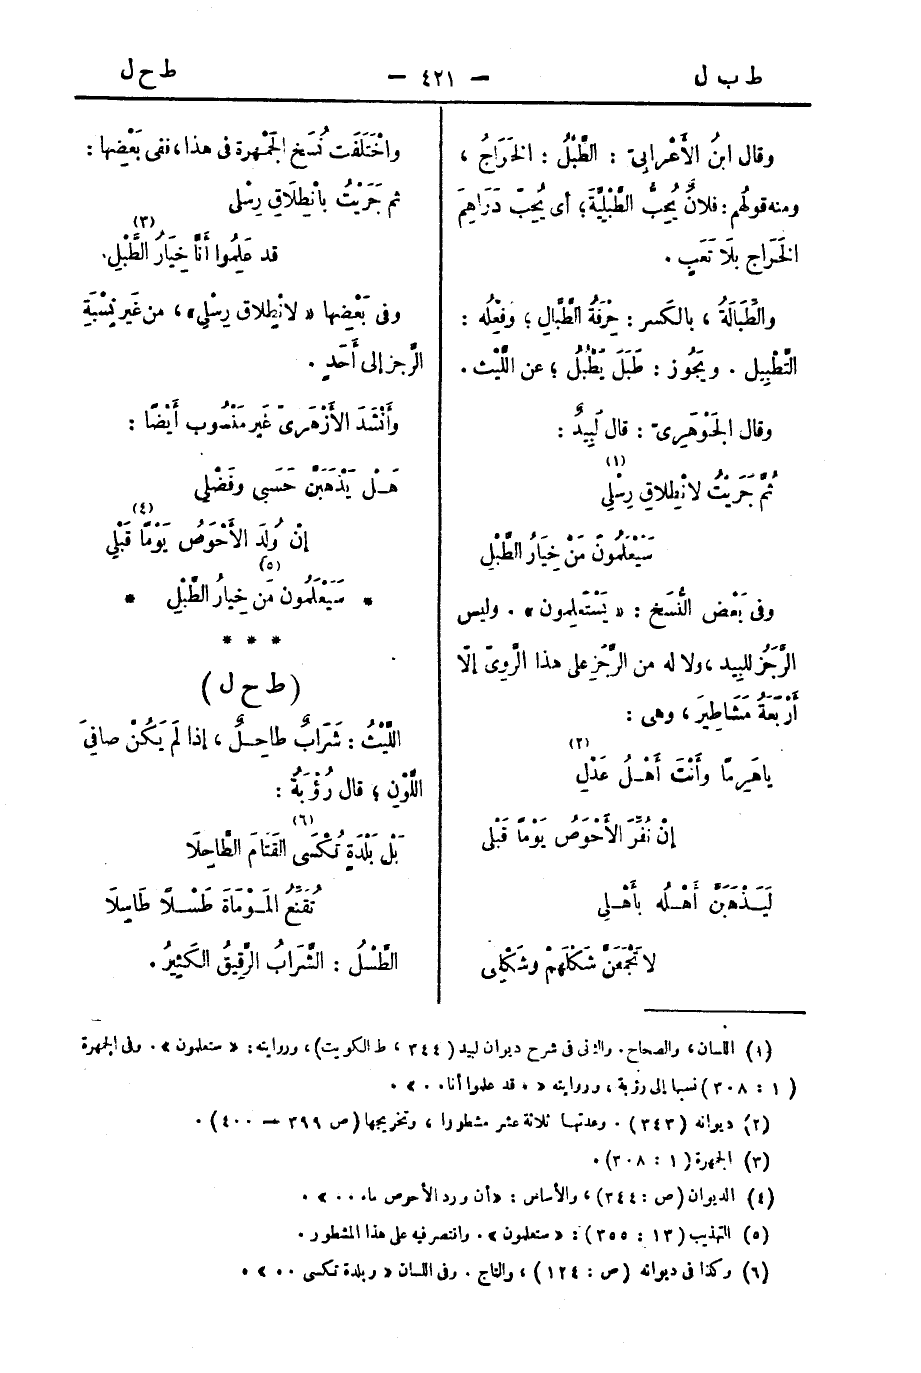 ط ب ل
— ٤٢١ —
ط ح ل
وقال ابنُ الأَعْرابِيّ : الطَّبْلُ : الخَرَاجُ ،
ومنه قولُهم : فلانٌ يُحِبُّ الطَّبْلِيَّةَ؛ أى يُحِبّ دَرَاهِمَ
الخَرَاجِ بلَا تَعَبٍ .
والطِّبَالَةُ ، بالكَسر : حِرْفَةُ الطَّبَّالِ ؛ وفِعْلُه :
التَّطْبِيل . ويَجُوز : طَبَلَ يَطْبُلُ ؛ عن اللَّيْث .
وقال الجَوْهَرىّ : قال لَبِيدٌ :
ثُمَّ جَرَيْتُ لانْطِلاقِ رِسْلِي (١)
سَيَعْلَمُونَ مَنْ خِيَارُ الطَّبْلِ
وفى بَعْض النُّسَخ : « يَسْتَعْلِمون » . وليس
الرَّجَزُ للَبِيد ، ولا له من الرَّجَزِ على هذا الرَّوِىّ إلّا
أَرْبَعَةُ مَشَاطِيرَ ، وهى :
ياهَرِمًا وأَنْتَ أَهْـلُ عَدْلِ (٢)
إنْ نُفِّرَ الأَحْوَصُ يَوْمًا قَبْلِى
لَيَـذْهَبَنَّ أَهْـلُه بأَهْـلِى
لا تَجْمَعَنْ شَكْلَهُمْ وشَكْلِى
واخْتَلَفَت نُسَخ الجَمْهرة فى هذا ، ففى بَعْضِها :
ثم جَرَيْتُ بانْطِلَاقِ رِسْلى
قد عَلِمُوا أَنَّا خِيَارُ الطَّبْلِ . (٣)
وفى بَعْضِها « لانْطِلاق رِسْلِي » ، من غَير نِسْبَةِ
الرَّجز إلى أَحَدٍ .
وأَنْشَدَ الأَزْهَرىّ غَير مَنْسُوب أَيْضًا :
هَـلْ يَذْهَبَنَّ حَسَبِى وفَضْلِى
إنْ وُلِدَ الأَحْوَصُ يَوْمًا قَبْلِي (٤)
* سَيَعْلَمُون مَن خِيارُ الطَّبْلِ (٥) *
* * *
( ط ح ل )
اللَّيْثُ : شَرَابٌ طاحِـلٌ ، إذا لَم يَكُنْ صافِىَ
اللَّوْنِ ؛ قال رُؤْبَةُ :
بَلْ بَلْدَةٍ تُكْسَى القَتَامَ الطَّاحِلَا (٦)
تُقَنِّعُ المَـوْمَاةَ طَسْـلًا طَاسِلَا
الطَّسْلُ : السَّرَابُ الرَّقِيقُ الكَثِيرُ .
(١) اللسان ، والصحاح . والثانى فى شرح ديوان لبيد ( ٣٤٤ ، ط الكويت ) ، وروايته : « ستعلمون » . وفى الجمهرة
( ١ : ٣٠٨ ) نسبا إلى رؤبة ، وروايته « . قد علموا أنا . . » .
(٢) ديوانه ( ٣٤٣ ) . وعدتها ثلاثة عشر مشطورا ، وتخريجها ( ص ٣٩٩ — ٤٠٠ ) .
(٣) الجمهرة ( ١ : ٣٠٨ ) .
(٤) الديوان ( ص : ٣٤٤ ) ، والأساس : « أن ورد الأحوص ماء . . » .
(٥) التهذيب ( ١٣ : ٣٥٥ ) : « ستعلمون » . واقتصر فيه على هذا المشطور .
(٦) وكذا فى ديوانه ( ص : ١٢٤ ) ، والتاج . وفى اللسان « وبلدة تكسى . . » .